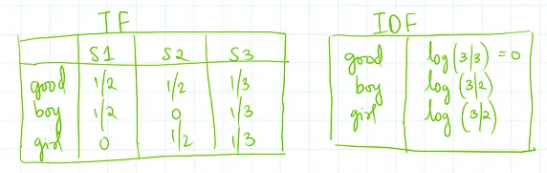 TF
S1 S2 S3
good 1/2 1/2 1/3
boy 1/2 0 1/3
girl 0 1/2 1/3
IDF
good log(3/3) = 0
boy log(3/2)
girl log(3/2)